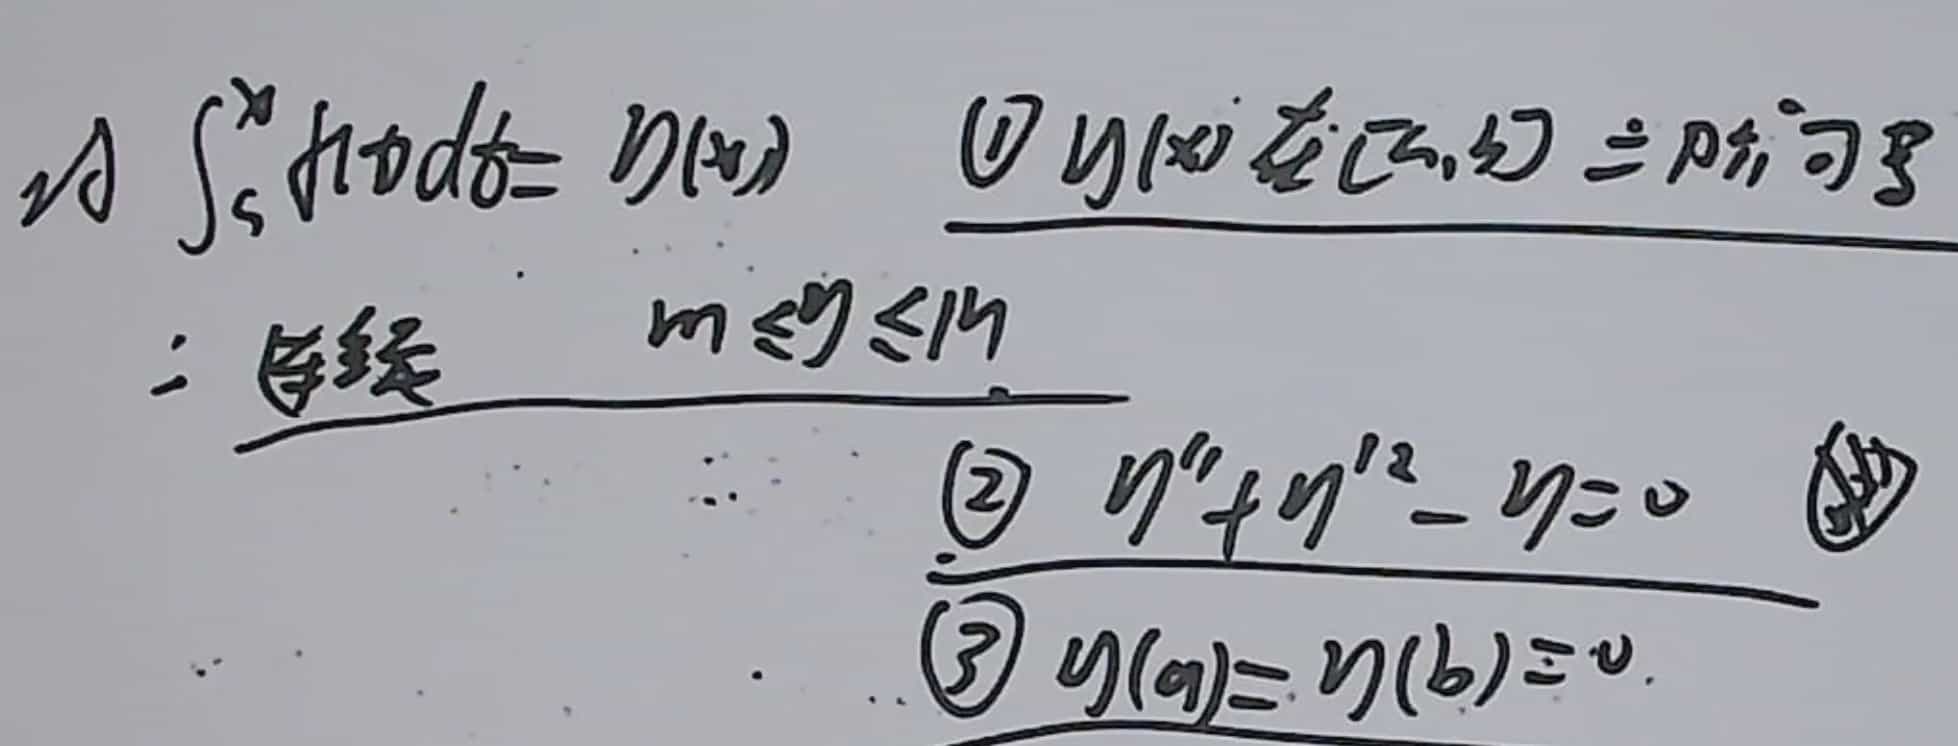 ∫ₐˣ f(t)dt = y(x) ① y(x)在[a,b]二阶可导
∴ 连续 m ≤ y ≤ M
② y'' + y'² - y = 0
③ y(a) = y(b) = 0.